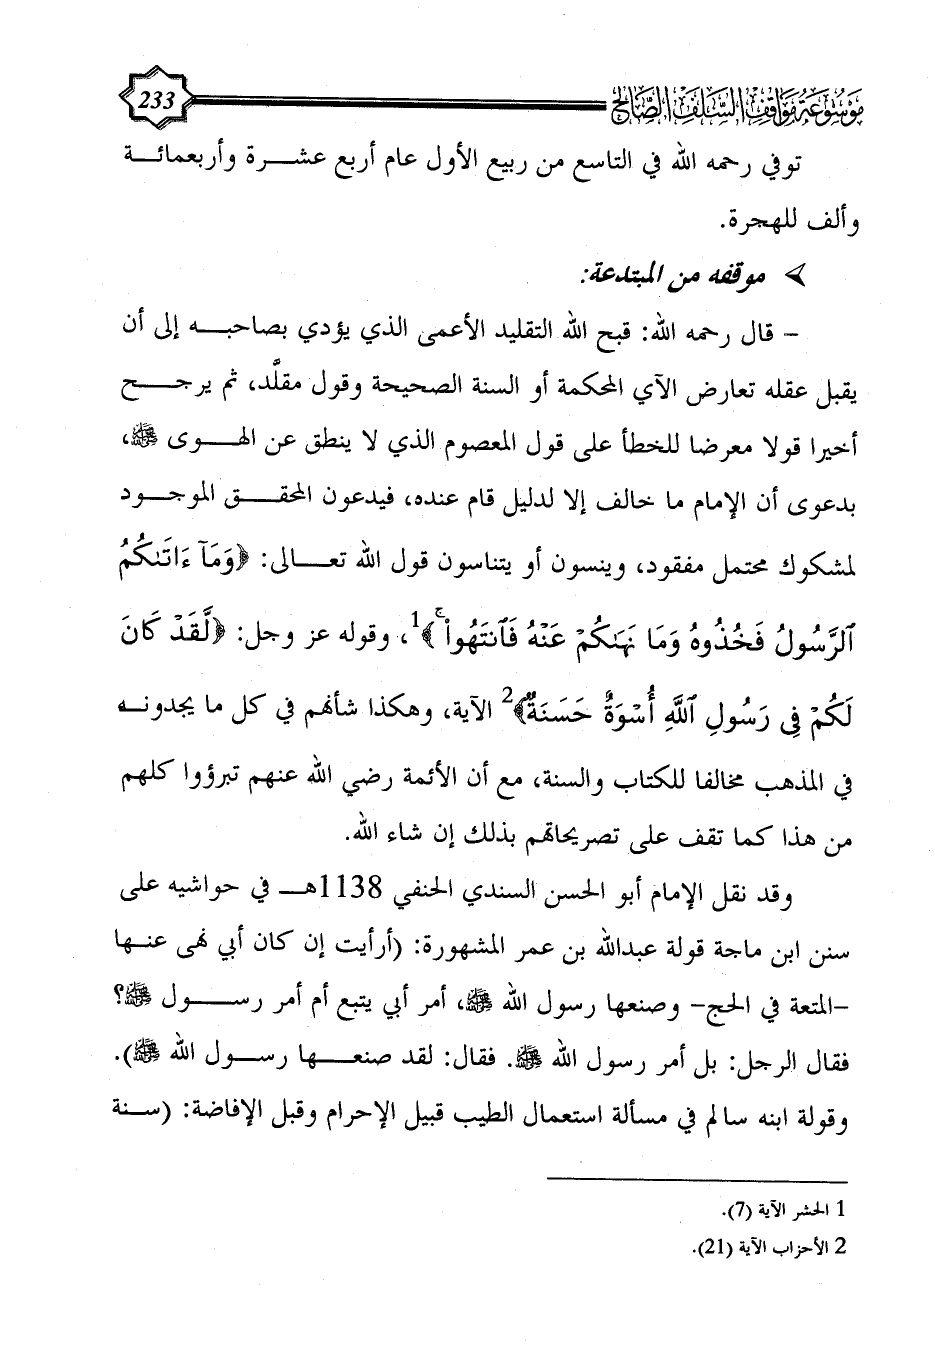 موسوعة مواقف السلف الصالح
233
توفي رحمه الله في التاسع من ربيع الأول عام أربع عشرة وأربعمائة
وألف للهجرة.
موقفه من المبتدعة:
– قال رحمه الله: قبح الله التقليد الأعمى الذي يؤدي بصاحبه إلى أن
يقبل عقله تعارض الآي المحكمة أو السنة الصحيحة وقول مقلَّد، ثم يرجح
أخيرا قولا معرضا للخطأ على قول المعصوم الذي لا ينطق عن الهوى ﷺ،
بدعوى أن الإمام ما خالف إلا لدليل قام عنده، فيدعون المحقق الموجود
لمشكوك محتمل مفقود، وينسون أو يتناسون قول الله تعالى: ﴿وَمَآ ءَاتَىٰكُمُ
ٱلرَّسُولُ فَخُذُوهُ وَمَا نَهَىٰكُمْ عَنْهُ فَٱنتَهُوا۟ ۚ﴾1، وقوله عز وجل: ﴿لَّقَدْ كَانَ
لَكُمْ فِى رَسُولِ ٱللَّهِ أُسْوَةٌ حَسَنَةٌ﴾2 الآية، وهكذا شأنهم في كل ما يجدونه
في المذهب مخالفا للكتاب والسنة، مع أن الأئمة رضي الله عنهم تبرؤوا كلهم
من هذا كما تقف على تصريحاتهم بذلك إن شاء الله.
وقد نقل الإمام أبو الحسن السندي الحنفي 1138هـ في حواشيه على
سنن ابن ماجة قولة عبدالله بن عمر المشهورة: (أرأيت إن كان أبي نهى عنها
–المتعة في الحج– وصنعها رسول الله ﷺ، أمر أبي يتبع أم أمر رسول ﷺ؟
فقال الرجل: بل أمر رسول الله ﷺ. فقال: لقد صنعها رسول الله ﷺ).
وقولة ابنه سالم في مسألة استعمال الطيب قبيل الإحرام وقبل الإفاضة: (سنة
1 الحشر الآية (7).
2 الأحزاب الآية (21).